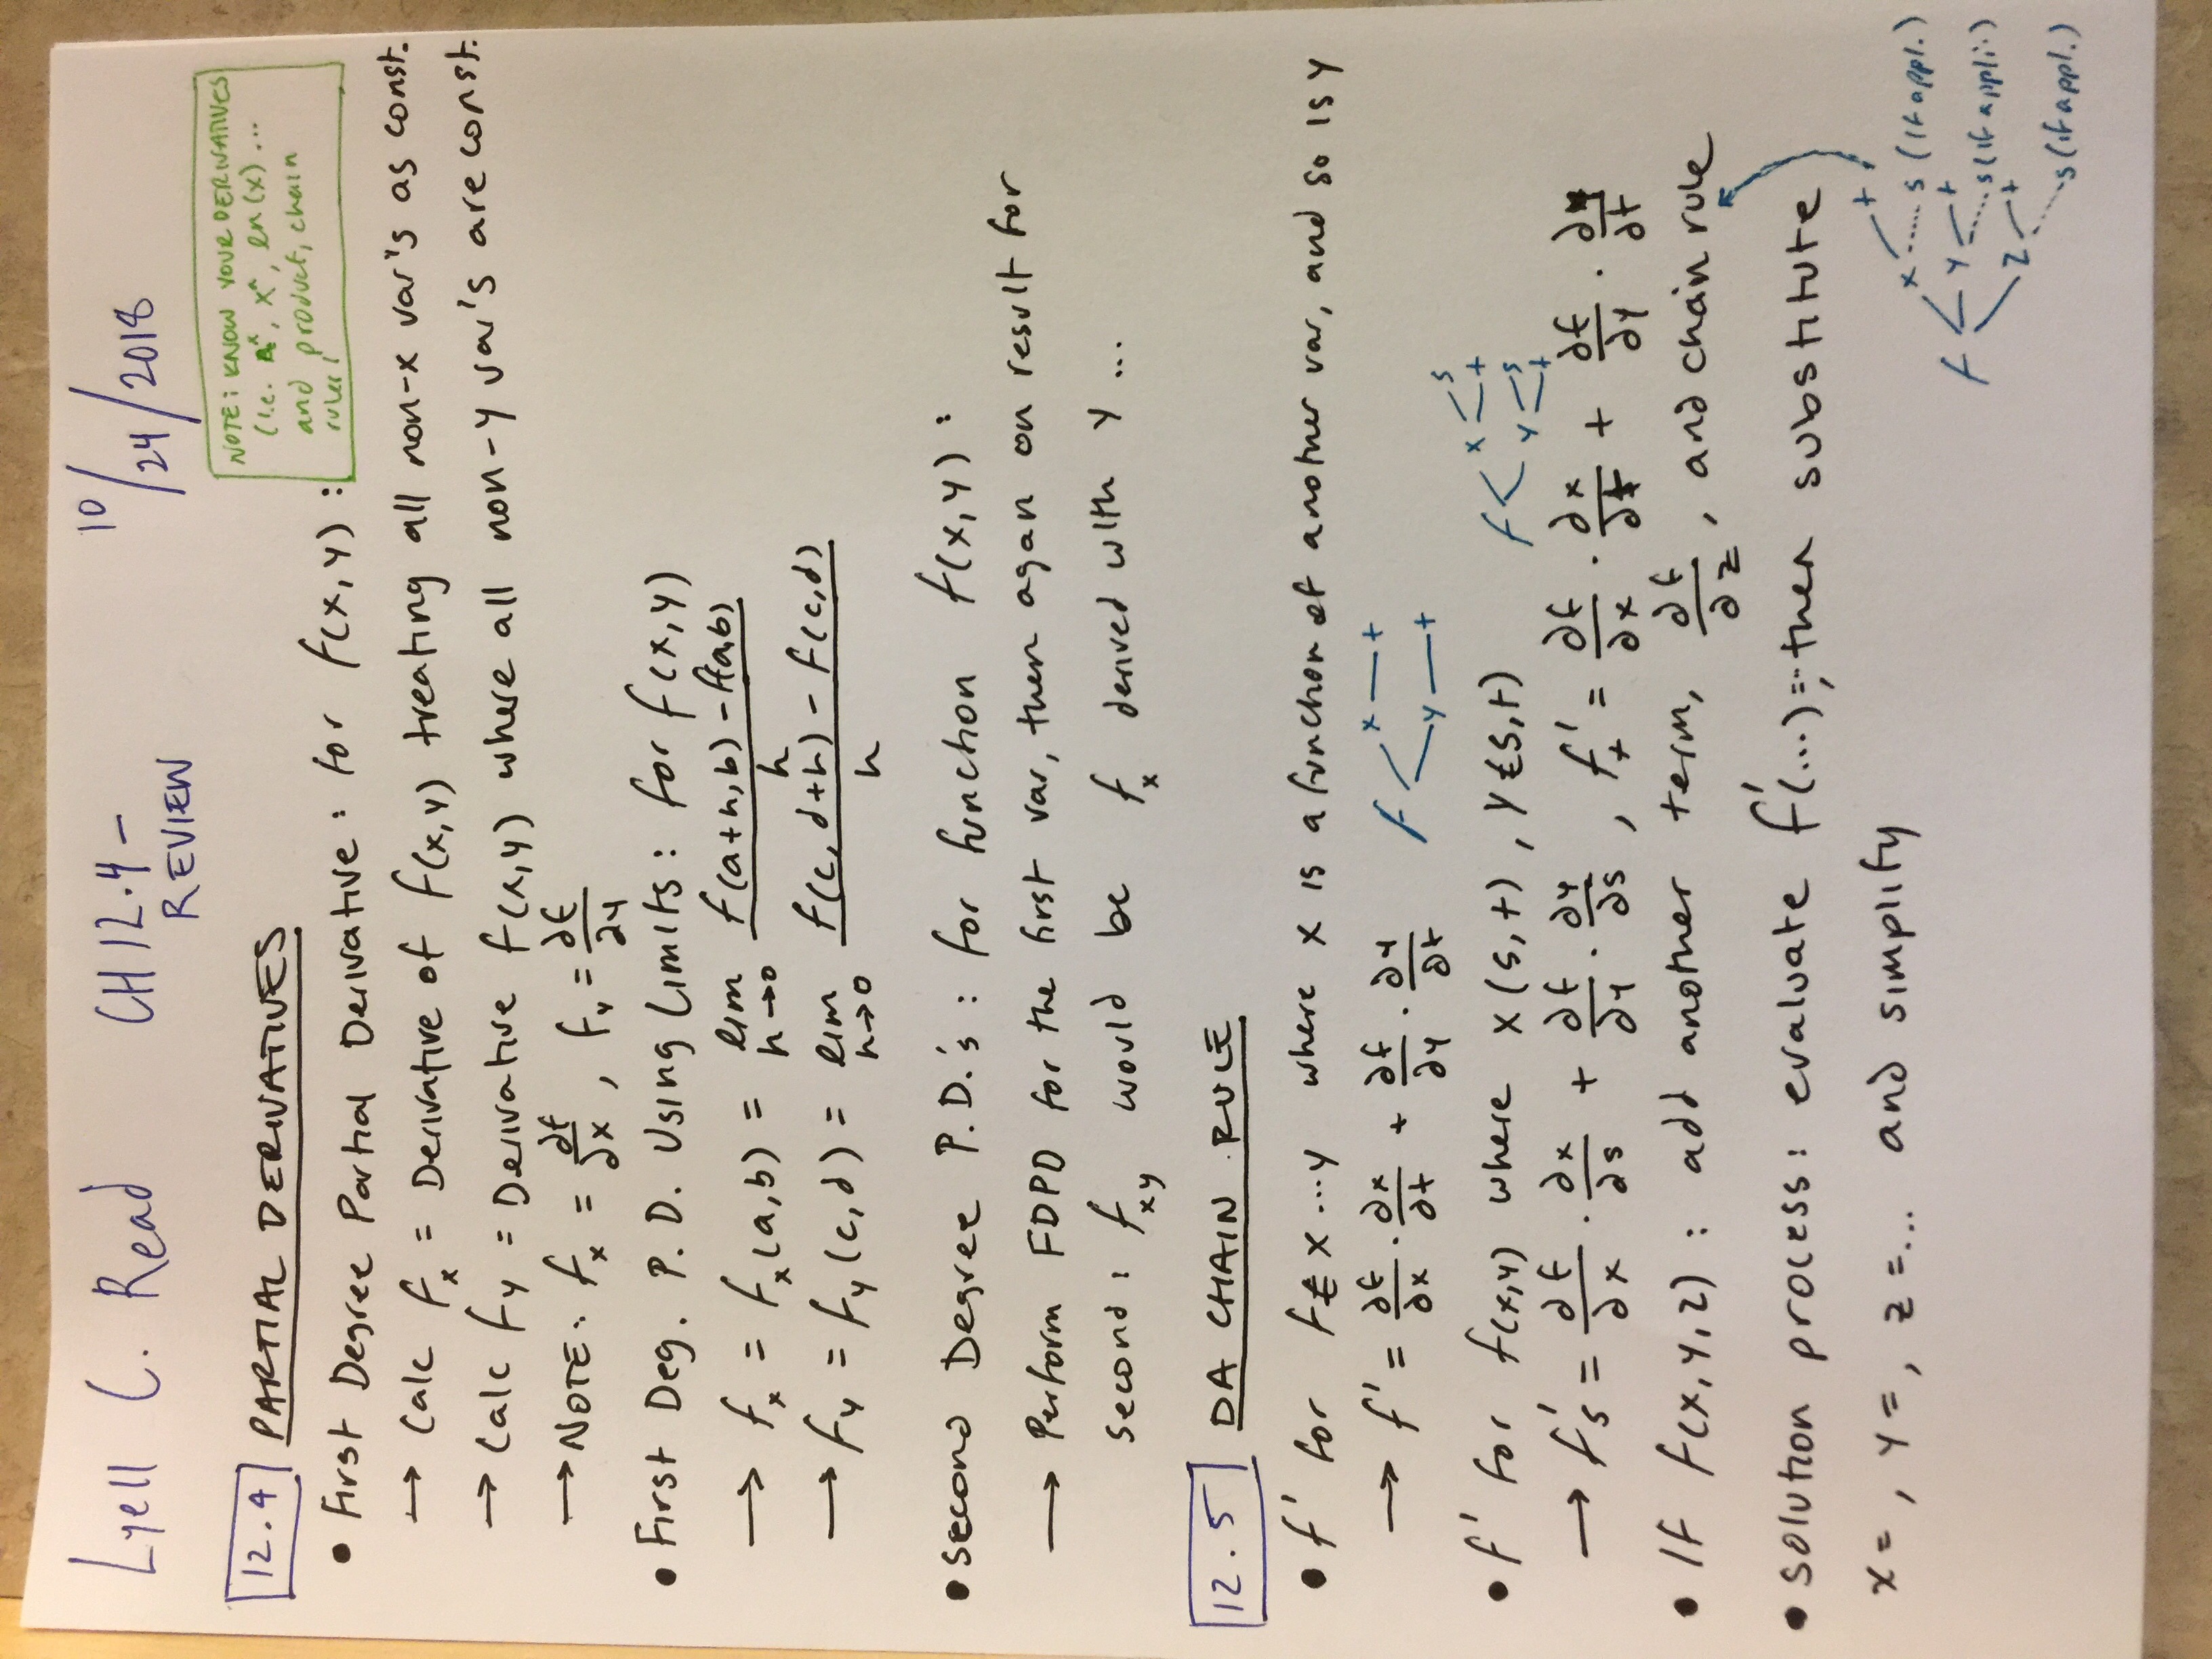 Lyell C. Read CH 12.4 - 10/24/2018
REVIEW
NOTE: KNOW YOUR DERIVATIVES
(i.e. A^x, x^n, ln(x)...
and product, chain
rules!
12.4 PARTIAL DERIVATIVES
• First Degree Partial Derivative: for f(x,y):
→ Calc f_x = Derivative of f(x,y) treating all non-x var's as const.
→ Calc f_y = Derivative f(x,y) where all non-y var's are const.
→ NOTE: f_x = ∂f/∂x, f_y = ∂f/∂y
• First Deg. P.D. Using Limits: for f(x,y)
→ f_x = f_x(a,b) = lim h→0 (f(a+h,b) - f(a,b))/h
→ f_y = f_y(c,d) = lim h→0 (f(c,d+h) - f(c,d))/h
• Second Degree P.D.'s: for function f(x,y):
→ Perform FDPD for the first var, then again on result for
second: f_xy would be f_x derived with y ...
12.5 DA CHAIN RULE
• f' for x...y where x is a function of another var, and so is y
→ f' = ∂f/∂x · ∂x/∂t + ∂f/∂y · ∂y/∂t f x t y t
• f' for f(x,y) where x(s,t), y(s,t) f x s t y s t
→ f's = ∂f/∂x · ∂x/∂s + ∂f/∂y · ∂y/∂s, f't = ∂f/∂x · ∂x/∂t + ∂f/∂y · ∂y/∂t
• If f(x,y,z): add another term, ∂f/∂z, and chain rule
• Solution process: evaluate f'(...)=; then substitute
x=, y=, z=... and simplify
t
x s (if appl.)
f y t
s (if appli.)
z t
s (if appl.)